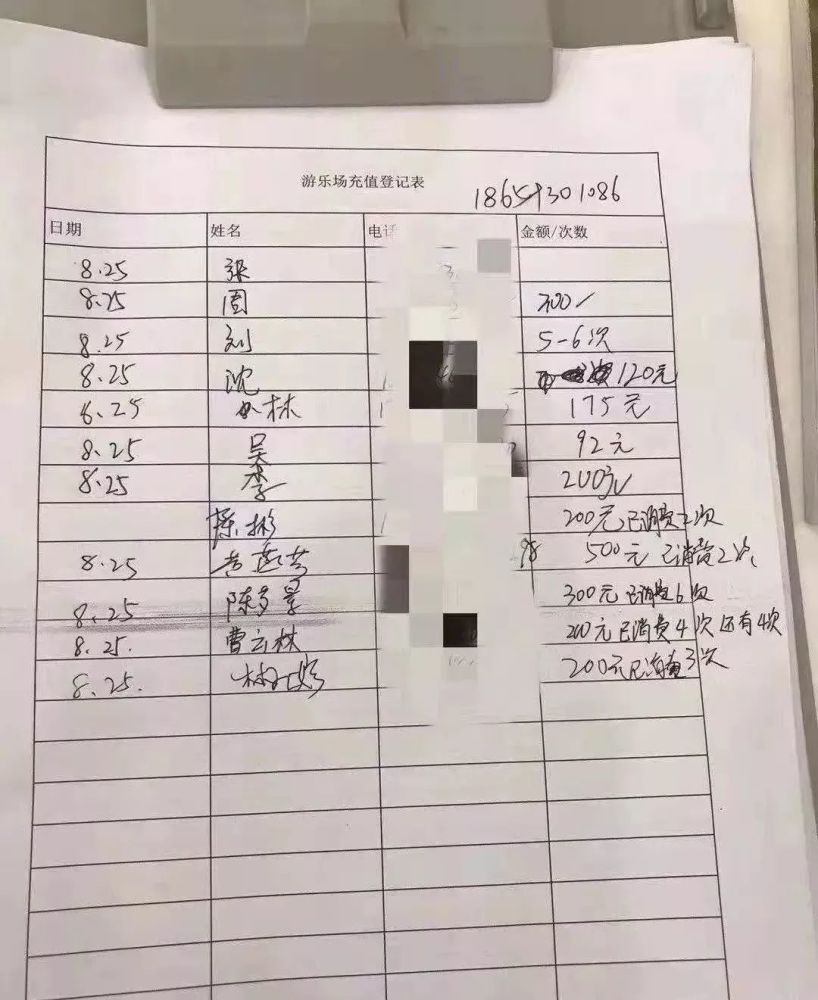 游乐场充值登记表
日期 姓名 电话 金额/次数
8.25 张
8.25 周 300
8.25 刘 5-6次
8.25 沈 120元
8.25 林 175元
8.25 吴 92元
8.25 李 200元
陈彬 200元已消费2次
8.25 黄 500元已消费2次
8.25 陈 300元已消费6次
8.25. 曹云林 200元已消费4次还有4次
8.25. 林 200元已消费3次